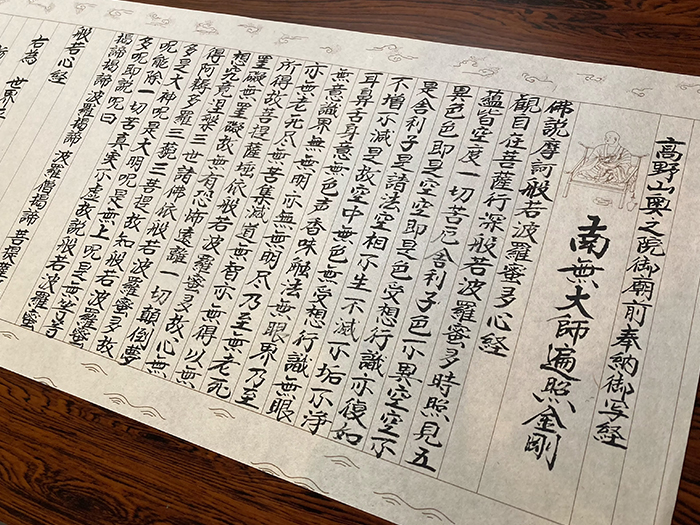 高野山奥之院御廟前奉納御写経
南無大師遍照金剛
佛説摩訶般若波羅蜜多心経
観自在菩薩行深般若波羅蜜多時照見五
蘊皆空度一切苦厄舎利子色不異空空不
異色色即是空空即是色受想行識亦復如
是舎利子是諸法空相不生不滅不垢不浄
不増不減是故空中無色無受想行識無眼
耳鼻舌身意無色声香味触法無眼界乃至
無意識界無無明亦無無明尽乃至無老死
亦無老死尽無苦集滅道無智亦無得以無
所得故菩提薩埵依般若波羅蜜多故心無
罣礙無罣礙故無有恐怖遠離一切顛倒夢
想究竟涅槃三世諸佛依般若波羅蜜多故
得阿耨多羅三藐三菩提故知般若波羅蜜
多是大神呪是大明呪是無上呪是無等等
呪能除一切苦真実不虚故説般若波羅蜜
多呪即説呪曰
揭諦揭諦 波羅揭諦 波羅僧揭諦 菩提薩
般若心経
右為 世界